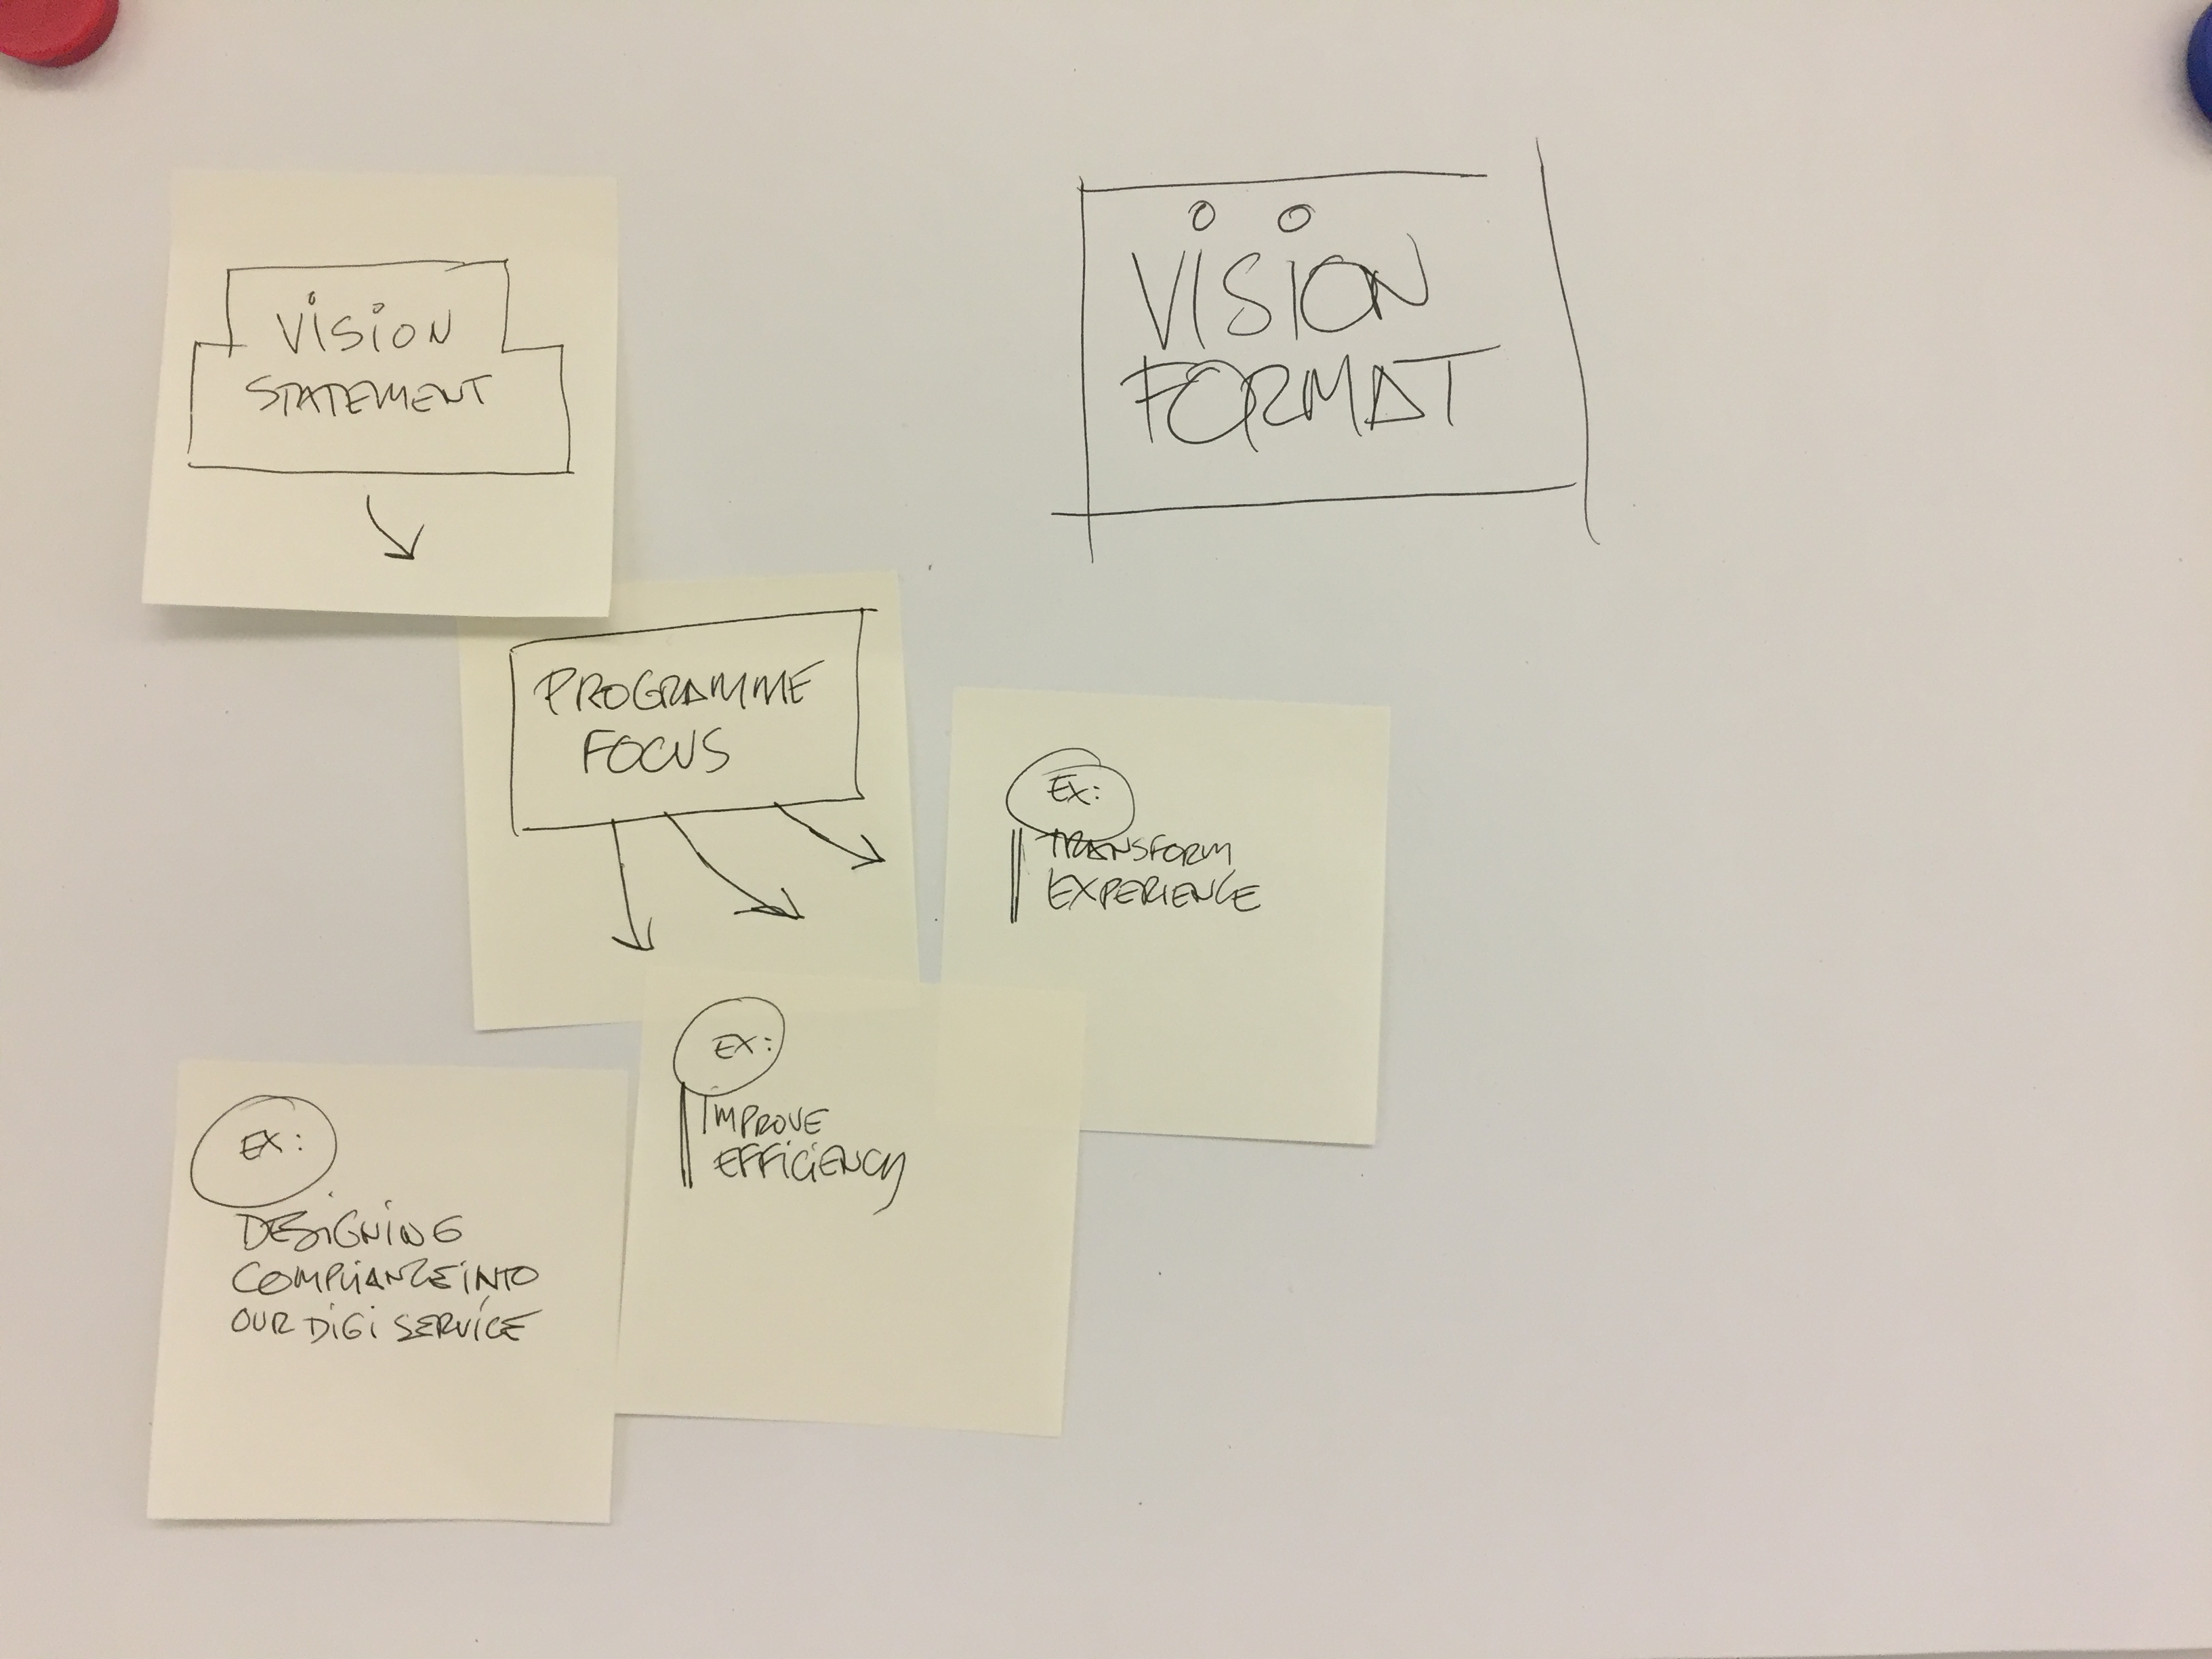 VISION
FORMAT
VISION
STATEMENT
PROGRAMME
FOCUS
EX:
TRANSFORM
EXPERIENCE
EX:
IMPROVE
EFFICIENCY
EX:
DESIGNING
COMPLIANCE INTO
OUR DIGI SERVICE